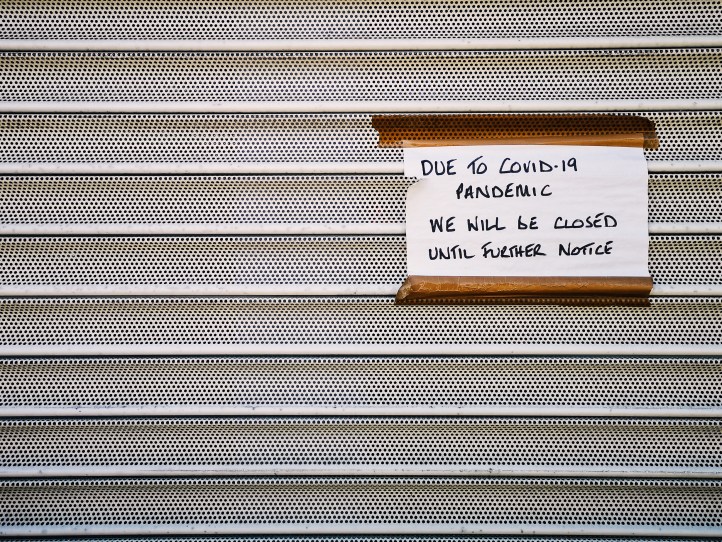 DUE TO COVID-19
PANDEMIC
WE WILL BE CLOSED
UNTIL FURTHER NOTICE